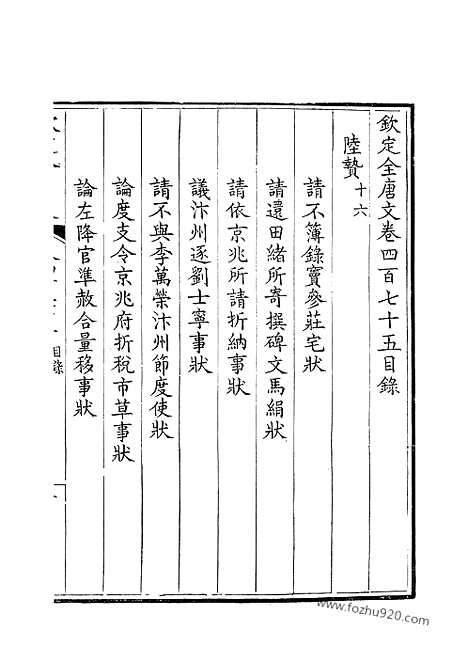 欽定全唐文卷四百七十五目錄
陸贄十六
請不簿錄竇參莊宅狀
請還田緒所寄撰碑文馬絹狀
請依京兆所請折納事狀
議汴州逐劉士寧事狀
請不與李萬榮汴州節度使狀
論度支令京兆府折稅市草事狀
論左降官準赦合量移事狀
目錄
www.fozhu920.com